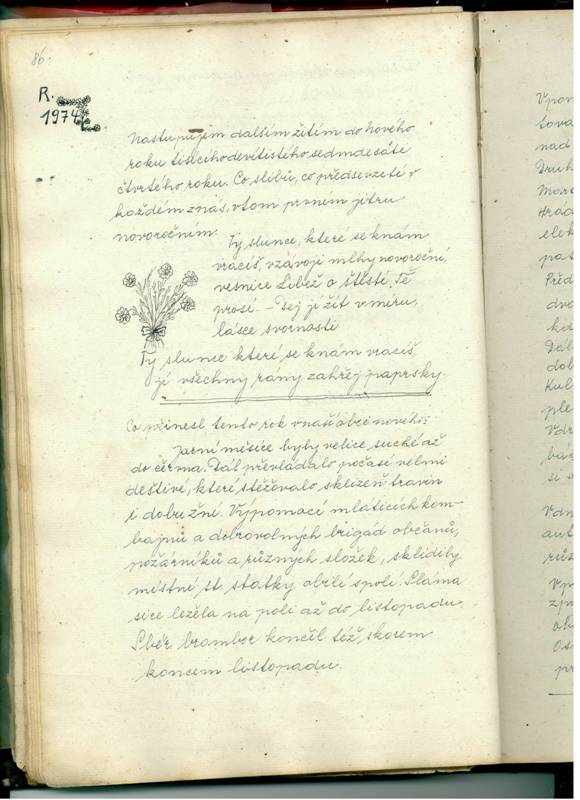 86.
R.
1974
Nastupujem dalším žitím do nového
roku tisícíhodevítistého sedmdesátí
čtvrtého roku. Co slibů, co předsevzetí v
každém znás, vtom prvním jitru
novoročním.
Ty slunce, které se knám
vracíš, vzávoji mlhy novoroční,
vesnice Libež o štěstí, Tě
prosí. – Dej jí žít vmíru,
lásce svornosti
Ty slunce které se knám vracíš,
jí všechny rány zahřej paprsky.
Co přinesl tento rok vnaší obci nového:
Jarní měsíce byly velice, suché až
do června. Dál převládalo počasí velmi
deštivé, které stěžovalo sklizeň travin
i dobu žní. Výpomocí mláticích kom-
bajnů a dobrovolných brigád občanů,
požárníků a různých složek, sklidily
místní st. statky obilí spolí. Sláma
sice ležela na poli až do listopadu.
Sběr brambor končil též, skorem
koncem listopadu.
Vpo
tova
nad
Druh
Hrád
elek
pas
Před
dvo
kd
Dál
dob
Kul
ple
Vdr
si
Vdn
aut
růz
Vp
zp
ob
Os
př